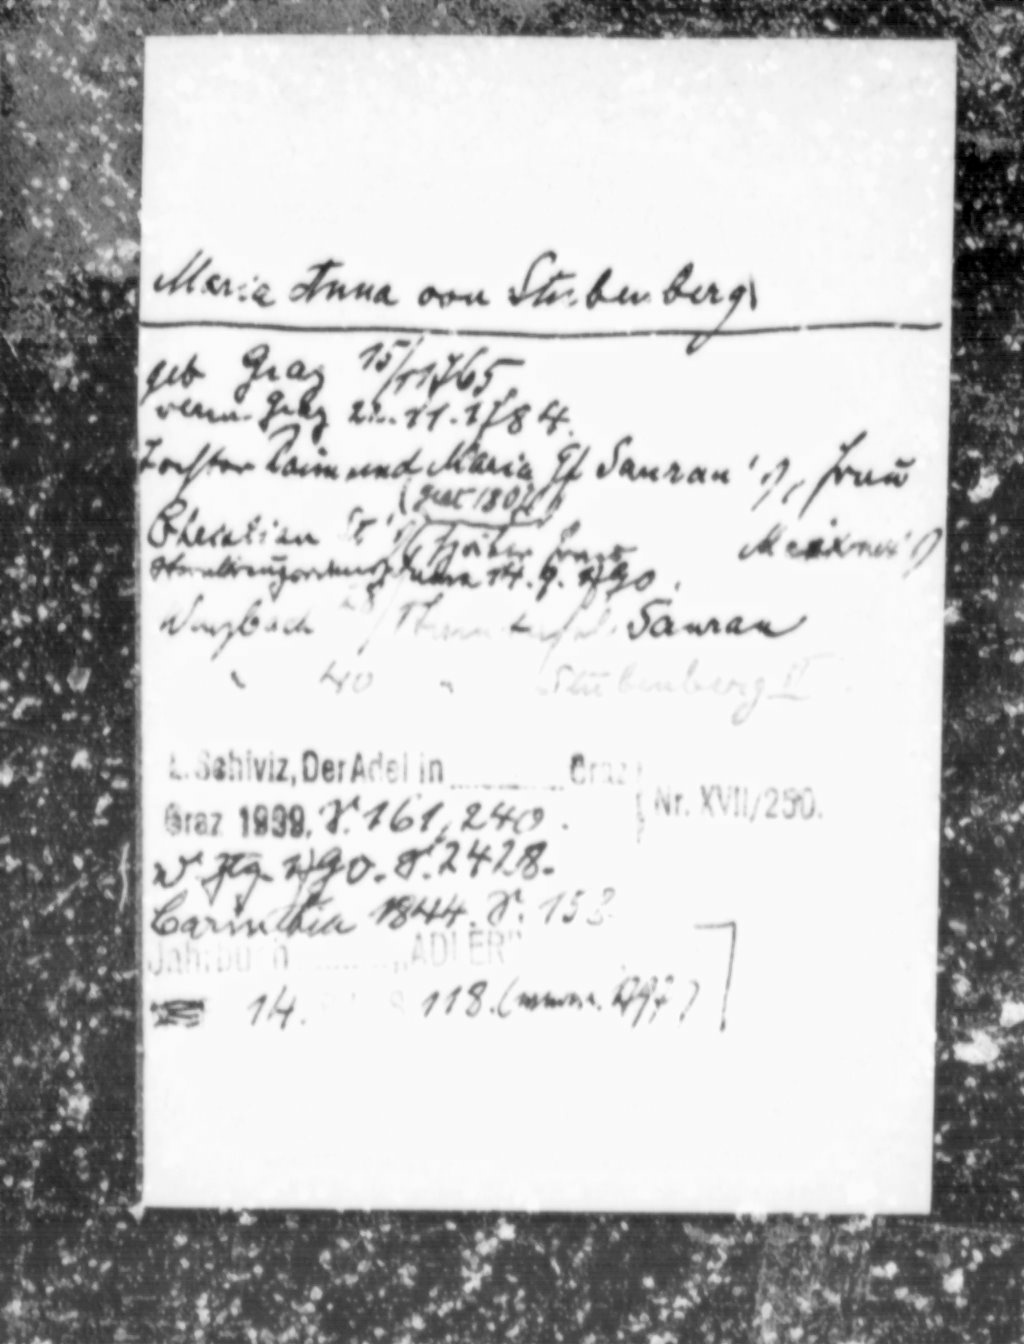 Maria Anna von Stubenberg
geb Graz 15/1 1765
verm. Graz 22.11.1784.
Tochter Raimund Maria Gf Saurau's, Frau
(gest 180
Christian St's Meixner's
Sternkreuzordens 14.9.1790.
Wurzbach 28/ Saurau
" 40 " Stubenberg II
L. Schiviz, Der Adel in Graz
Graz 1909. S. 161, 240. Nr. XVII/250.
W. Ztg. 1790. S. 2428.
Carinthia 1844. S. 153
Jahrbuch „ADLER"
14. 118. ( 1797)